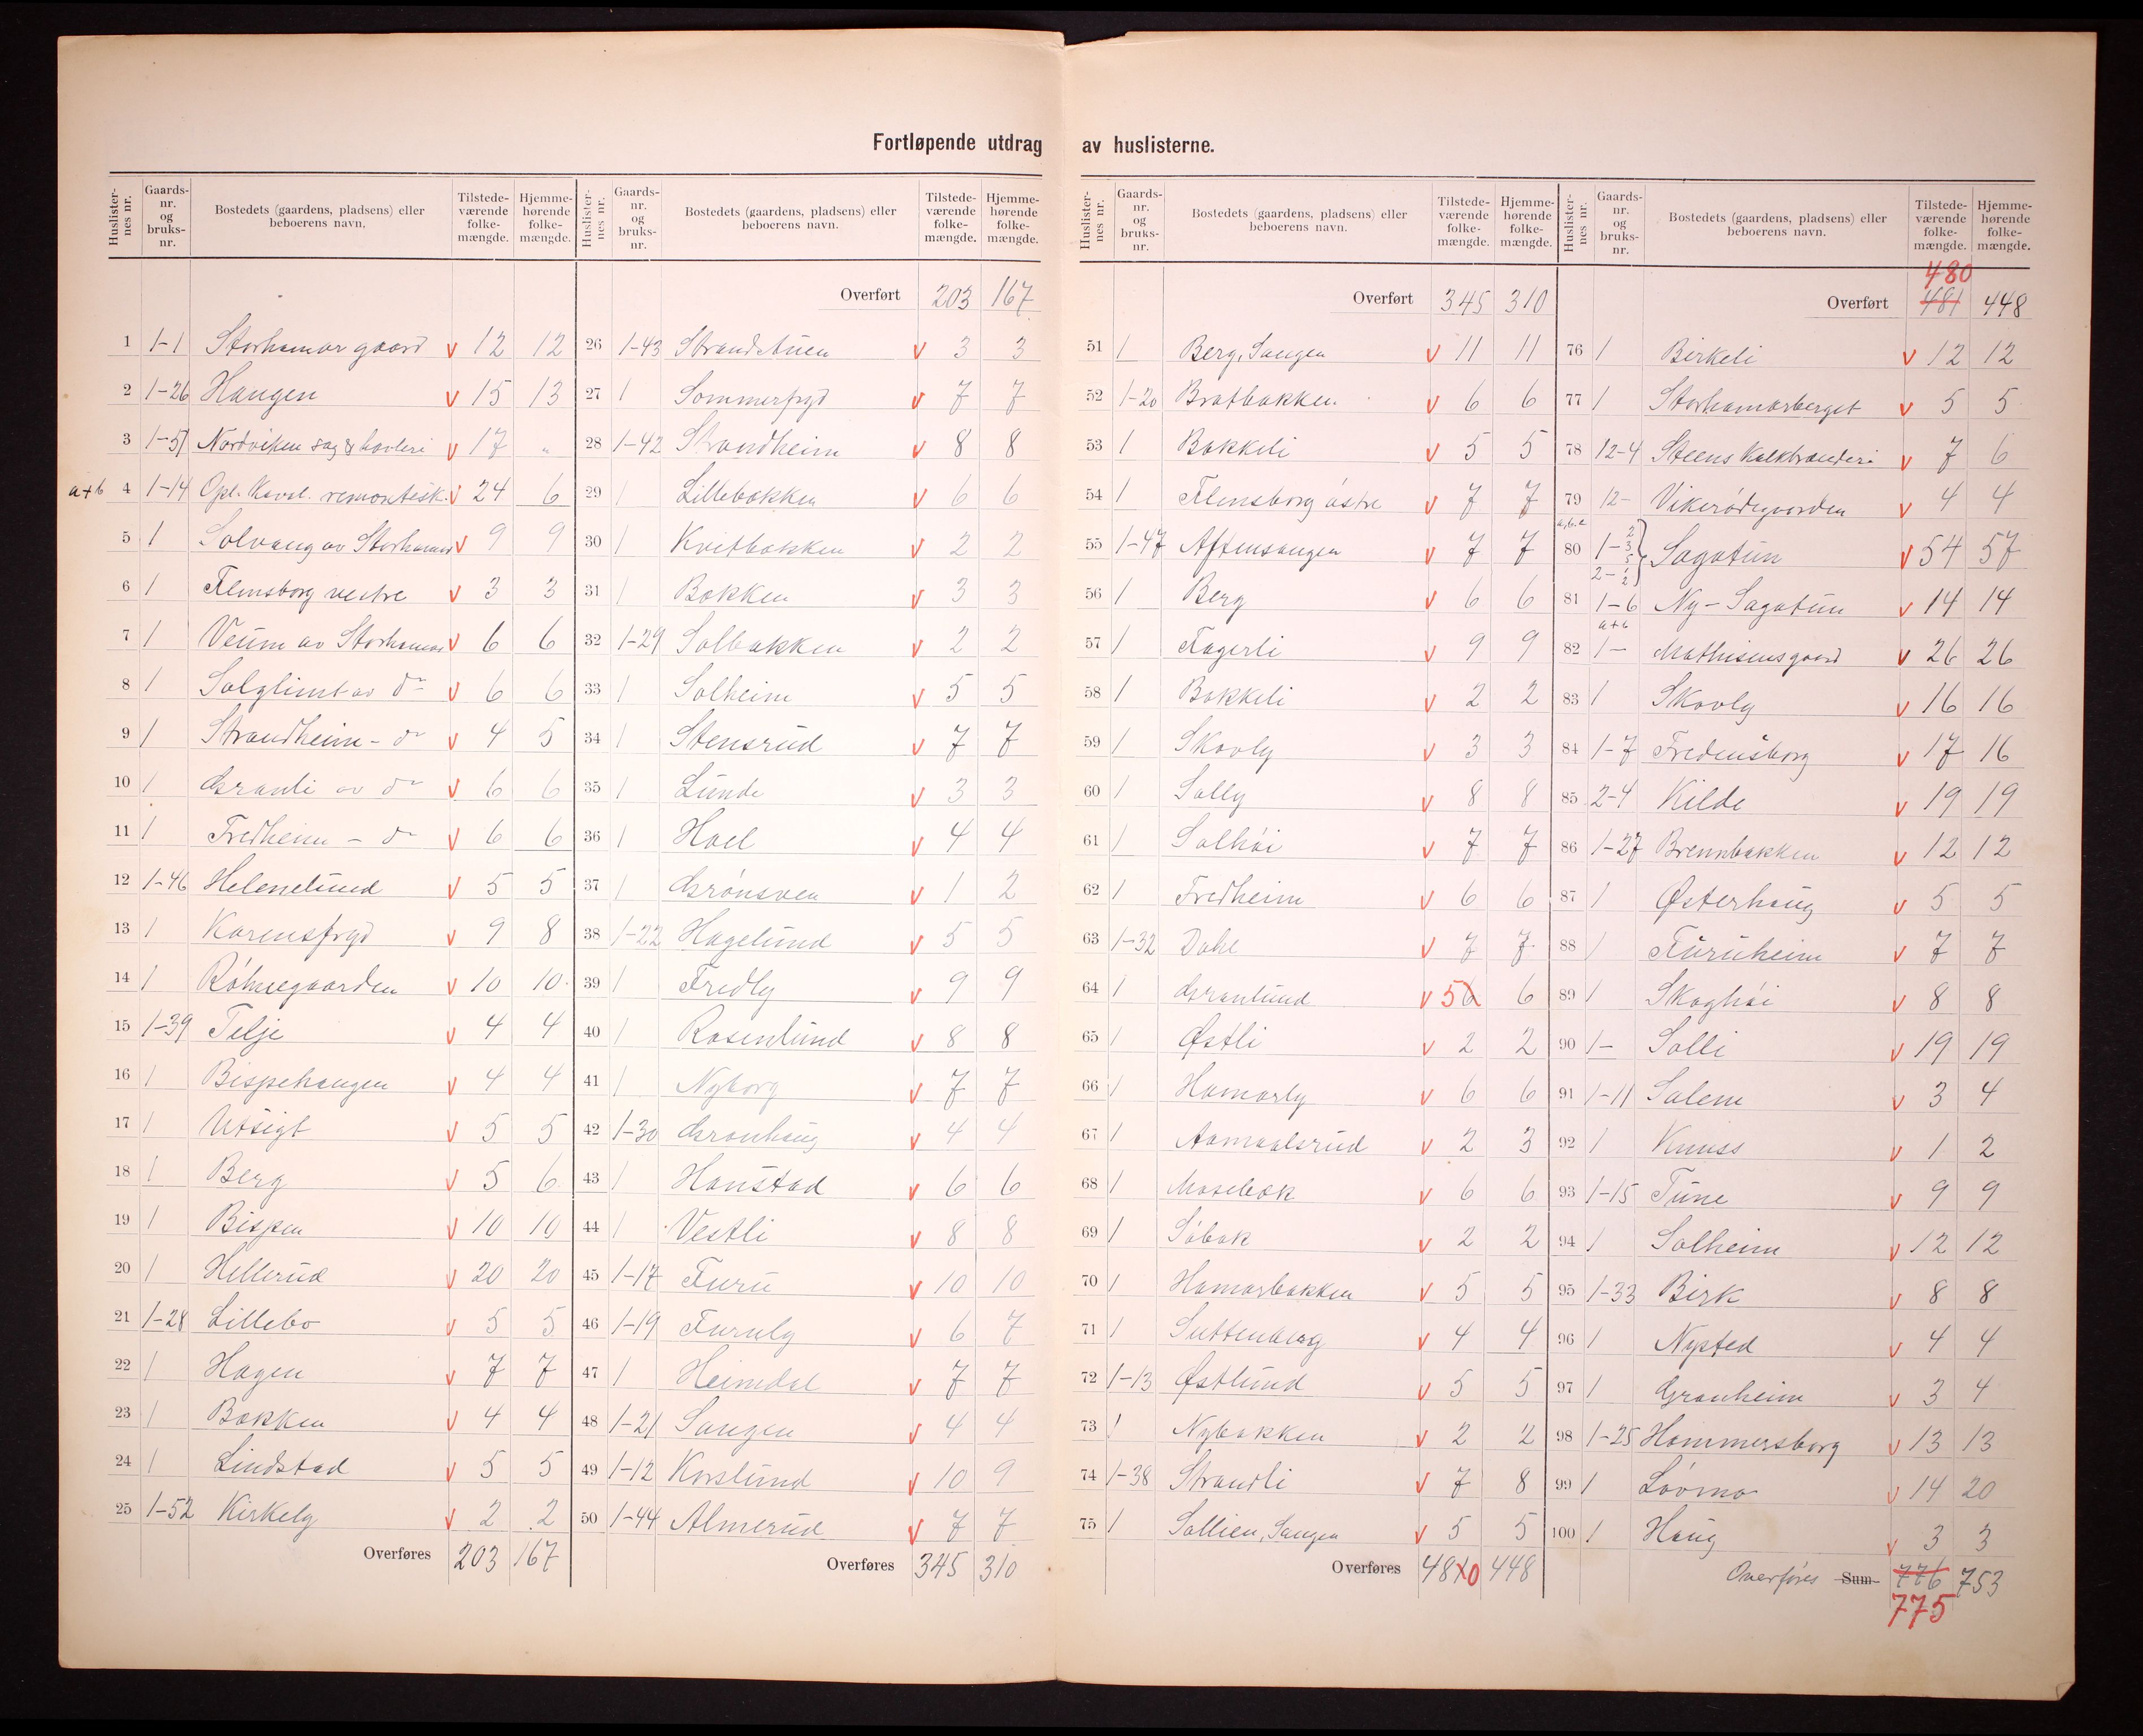 Fortløpende utdrag av huslisterne.
Huslisternes nr. Gaards-nr. og bruks-nr. Bostedets (gaardens, pladsens) eller beboerens navn. Tilstede-værende folke-mængde. Hjemme-hørende folke-mængde.
1 1-1 Storhamar gaard v 12 12
2 1-26 Haugen v 15 13
3 1-51 Nordviken sag & høvleri v 17 "
a+b 4 1-14 Opl. Kaval. remontesk. v 24 6
5 1 Solvang av Storhamar v 9 9
6 1 Flensborg vestre v 3 3
7 1 Veum av Storhamar v 6 6
8 1 Solglimt av do v 6 6
9 1 Strandheim - do v 4 5
10 1 Granli av do v 6 6
11 1 Fredheim - do v 6 6
12 1-46 Helenelund v 5 5
13 1 Karensfryd v 9 8
14 1 Röhnegaarden v 10 10
15 1-39 Tilje v 4 4
16 1 Bispehaugen v 4 4
17 1 Utsigt v 5 5
18 1 Berg v 5 6
19 1 Bispen v 10 10
20 1 Hellerud v 20 20
21 1-28 Lillebo v 5 5
22 1 Hagen v 7 7
23 1 Bakken v 4 4
24 1 Lindstad v 5 5
25 1-52 Kirkely v 2 2
Overføres 203 167
Huslisternes nr. Gaards-nr. og bruks-nr. Bostedets (gaardens, pladsens) eller beboerens navn. Tilstede-værende folke-mængde. Hjemme-hørende folke-mængde.
Overført 203 167
26 1-43 Strandstuen v 3 3
27 1 Sommerfryd v 7 7
28 1-42 Strandheim v 8 8
29 1 Lillebakken v 6 6
30 1 Kvitbakken v 2 2
31 1 Bakken v 3 3
32 1-29 Solbakken v 2 2
33 1 Solheim v 5 5
34 1 Stensrud v 7 7
35 1 Lunde v 3 3
36 1 Hoel v 4 4
37 1 Grönsven v 1 2
38 1-22 Hagelund v 5 5
39 1 Fredly v 9 9
40 1 Rosenlund v 8 8
41 1 Nyborg v 7 7
42 1-30 Granhaug v 4 4
43 1 Hanstad v 6 6
44 1 Vestli v 8 8
45 1-17 Furu v 10 10
46 1-19 Furuly v 6 7
47 1 Heimdal v 7 7
48 1-21 Sangen v 4 4
49 1-12 Korslund v 10 9
50 1-44 Almerud v 7 7
Overføres 345 310
Huslisternes nr. Gaards-nr. og bruks-nr. Bostedets (gaardens, pladsens) eller beboerens navn. Tilstede-værende folke-mængde. Hjemme-hørende folke-mængde.
Overført 345 310
51 1 Berg, Sangen v 11 11
52 1-20 Bratbakken v 6 6
53 1 Bakkeli v 5 5
54 1 Flensborg östre v 7 7
55 1-47 Aftensangen v 7 7
56 1 Berg v 6 6
57 1 Fagerli v 9 9
58 1 Bakkeli v 2 2
59 1 Skovly v 3 3
60 1 Solly v 8 8
61 1 Solhöi v 7 7
62 1 Fredheim v 6 6
63 1-32 Dahl v 7 7
64 1 Granlund v 5 6 6
65 1 Østli v 2 2
66 1 Hamarly v 6 6
67 1 Aamaalsrud v 2 3
68 1 Mosebæk v 6 6
69 1 Söbak v 2 2
70 1 Hamarbakken v 5 5
71 1 Suttenberg v 4 4
72 1-13 Østlund v 5 5
73 1 Nybakken v 2 2
74 1-38 Strandli v 7 8
75 1 Sollien, Sangen v 5 5
Overføres 481 0 448
Huslisternes nr. Gaards-nr. og bruks-nr. Bostedets (gaardens, pladsens) eller beboerens navn. Tilstede-værende folke-mængde. Hjemme-hørende folke-mængde.
480
Overført 481 448
76 1 Birkeli v 12 12
77 1 Storhamarberget v 5 5
78 12-4 Steens Kalkbrænderi v 7 6
79 12- Vikerödegaarden v 4 4
a,b,c 80 1-2 3 5 2-1 2 Sagatun v 54 57
81 1-6 Ny-Sagatun v 14 14
a+b
82 1- Mathisensgaard v 26 26
83 1 Skovly v 16 16
84 1-7 Fredensborg v 17 16
85 2-4 Kilde v 19 19
86 1-27 Brennbakken v 12 12
87 1 Østerhaug v 5 5
88 1 Furuheim v 7 7
89 1 Skoghöi v 8 8
90 1- Solli v 19 19
91 1-11 Salem v 3 4
92 1 Knuss v 1 2
93 1-15 Tune v 9 9
94 1 Solheim v 12 12
95 1-33 Birk v 8 8
96 1 Nysted v 4 4
97 1 Granheim v 3 4
98 1-25 Hammersborg v 13 13
99 1 Lövmo v 14 20
100 1 Haug v 3 3
Overføres Sum 776 753
775